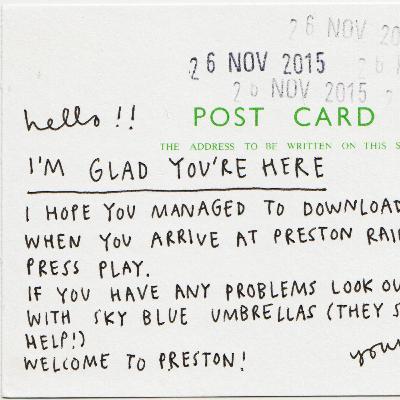 26 NOV
26 NOV 2015
26 NOV 2015
hello!!
POST CARD
THE ADDRESS TO BE WRITTEN ON THIS
I'M GLAD YOU'RE HERE
I HOPE YOU MANAGED TO DOWNLOAD
WHEN YOU ARRIVE AT PRESTON
PRESS PLAY.
IF YOU HAVE ANY PROBLEMS LOOK
WITH SKY BLUE UMBRELLAS (THEY
HELP!)
WELCOME TO PRESTON!